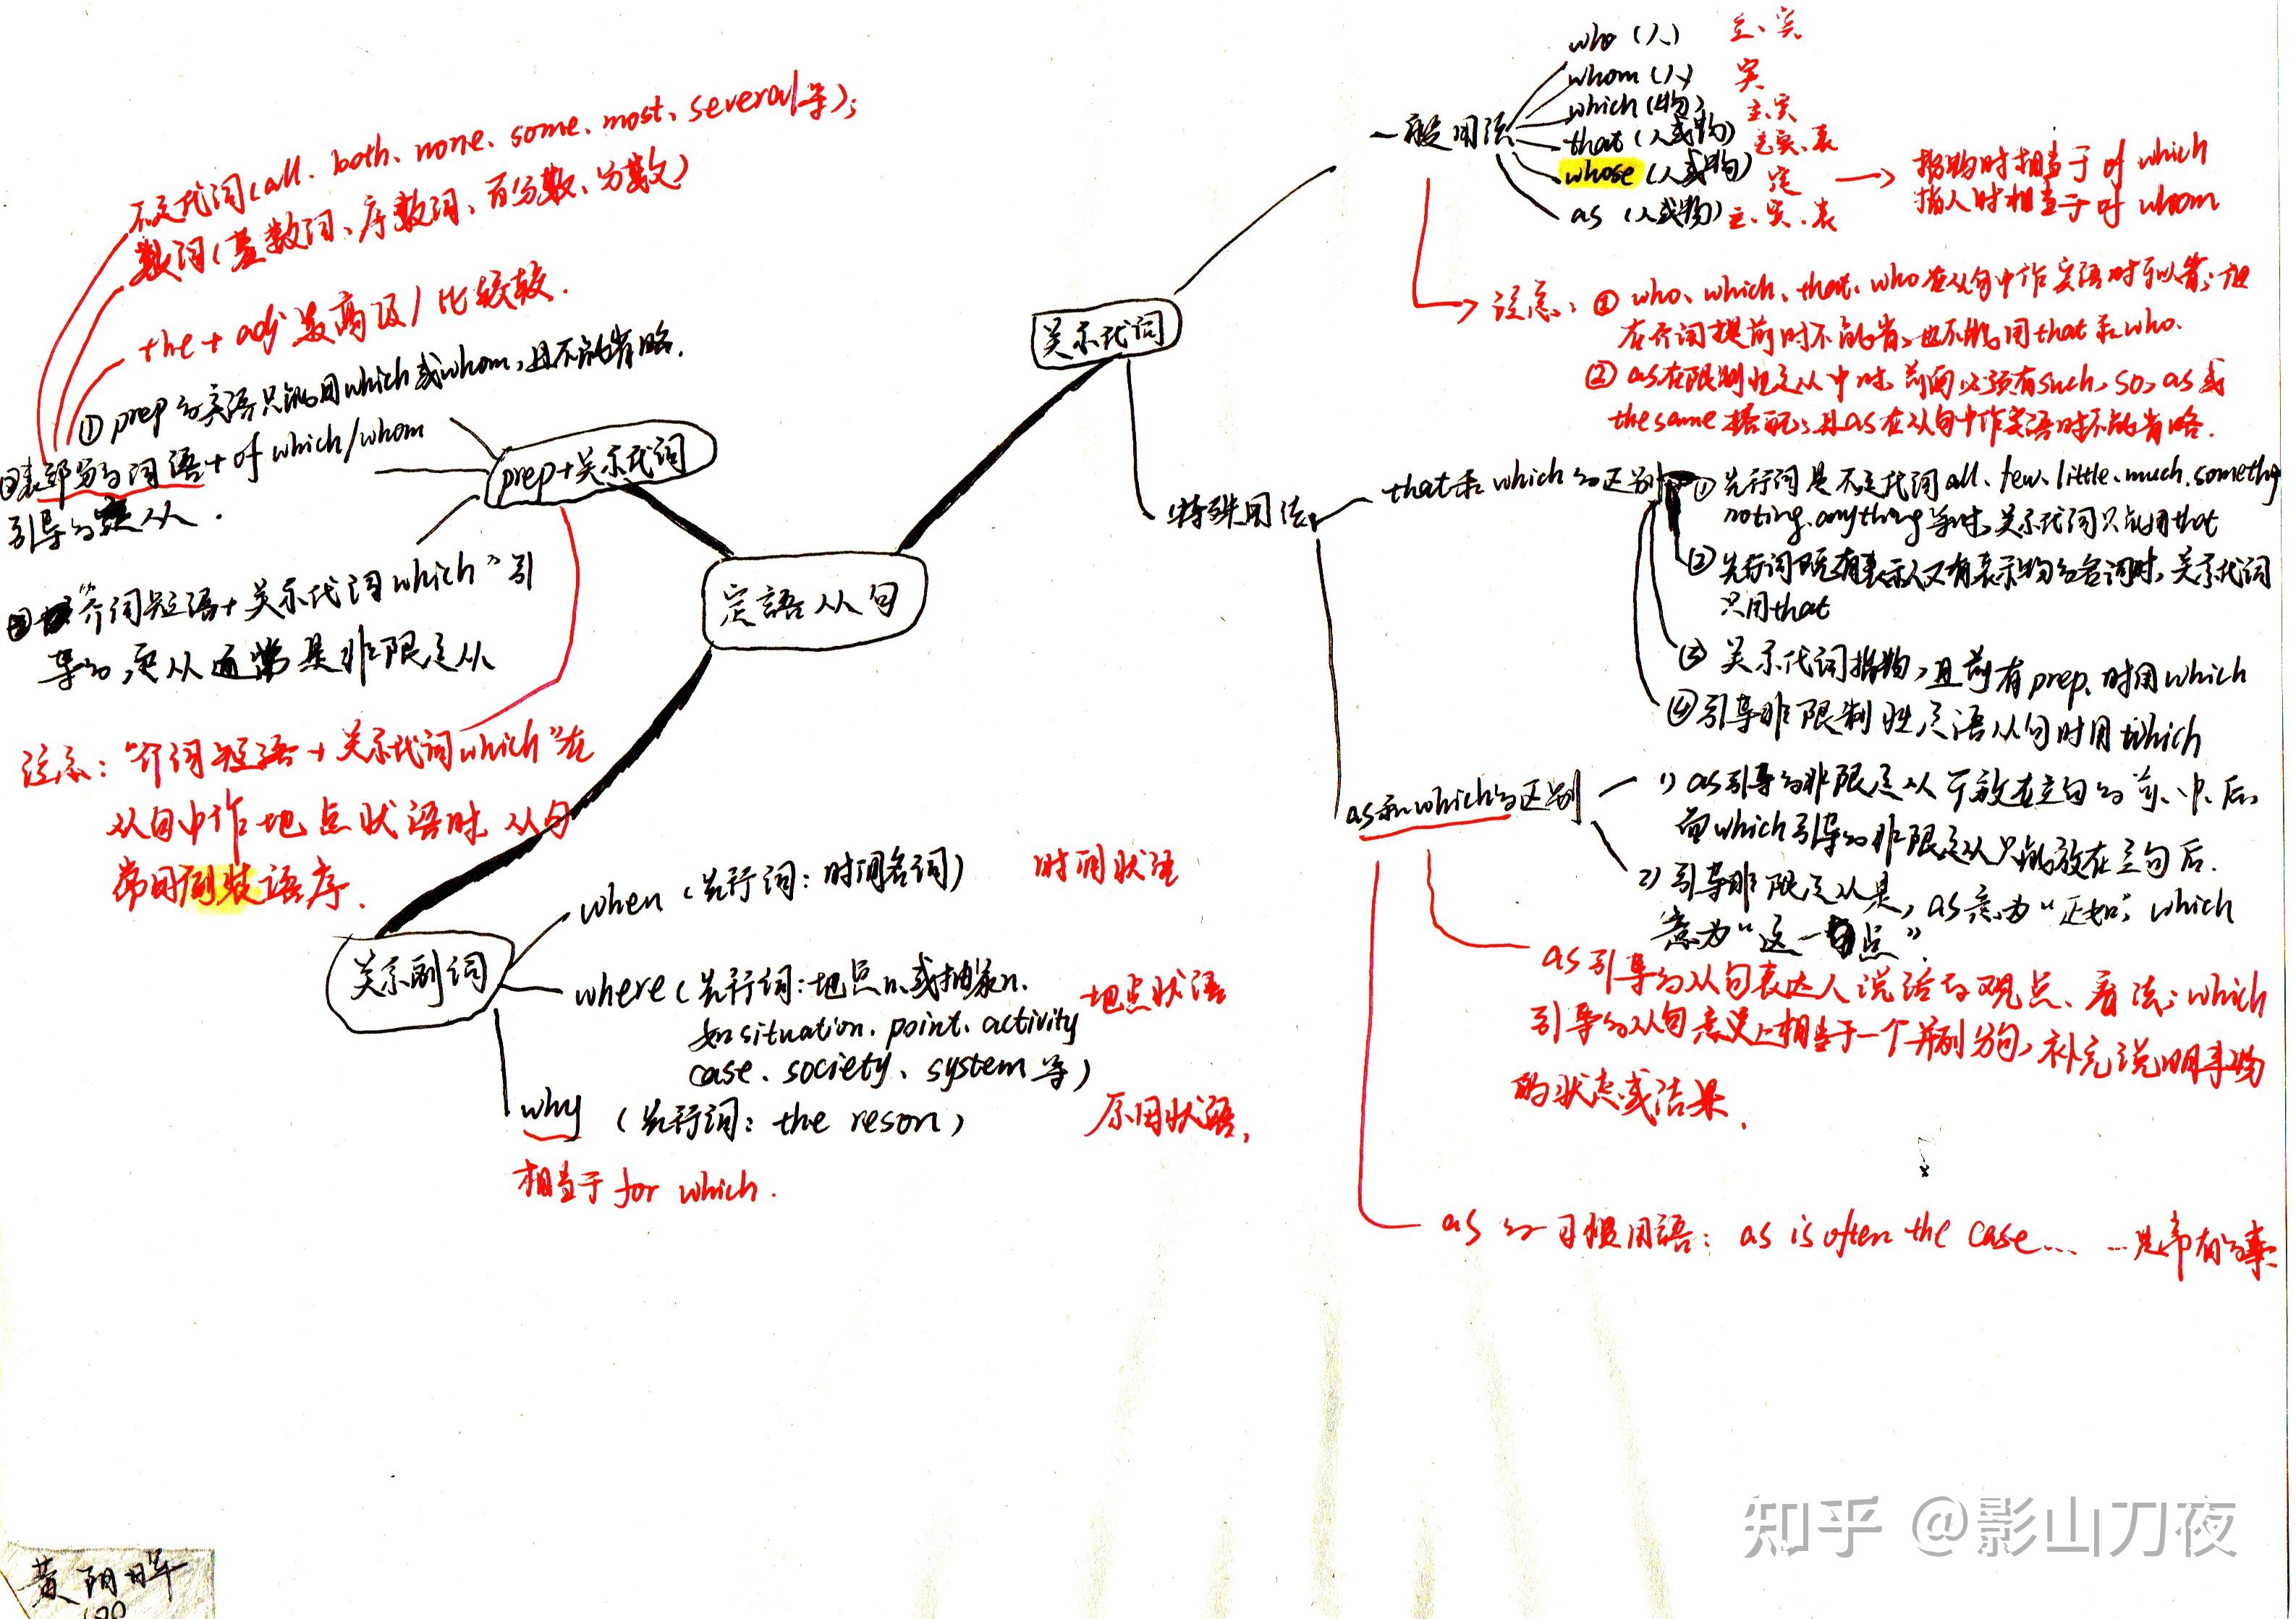 定語从句
关系代词
一般用法
who (人) 主、宾
whom (人) 宾
which (物) 主、宾
that (人或物) 主、宾、表
whose (人或物) 定
as (人或物) 主、宾、表
指物时相当于 of which
指人时相当于 of whom
注意：① who、which、that、who在从句中作宾语时可以省；但
在介词提前时不能省，也不能用that和who.
② as在限制性定从中时，前面必须有such、so、as或
the same搭配；且as在从句中作宾语时不能省略.
特殊用法
that和which的区别
① 先行词是不定代词all、few、little、much、somethg
noting、anything等时，关系代词只能用that
② 先行词既有表示人又有表示物的名词时，关系代词
只用that
③ 关系代词指物，且前有prep. 时用which
④ 引导非限制性定语从句时用which
as和which的区别
1) as引导的非限定从可放在主句的前、中、后，
而which引导的非限定从只能放在主句后.
2) 引导非限定从是，as意为“正如”，which
意为“这一点”.
as引导的从句表达人说话的观点、看法；which
引导的从句意义上相当于一个并列分句，补充说明事物
的状态或结果.
as的习惯用語：as is often the case…. …是常有的事
prep+关系代词
不定代词(all、both、none、some、most、several等)；
数词(基数词、序数词、百分数、分数)
the + adj 最高级 / 比较较.
① prep的宾语只能用which或whom，且不能省略.
②表部分的词语+of which/whom
引导的定从.
“介词短语+关系代词which”引
导的定从通常是非限定从
注意：“介词短语+关系代词which”在
从句中作地点状语时从句
常用倒装语序.
关系副词
when (先行词：时间名词) 时间状语
where (先行词：地点n.或抽象n. 地点状语
如situation、point、activity
case、society、system等)
why (先行词：the reson) 原因状语.
相当于 for which.
知乎 @影山刀夜
100